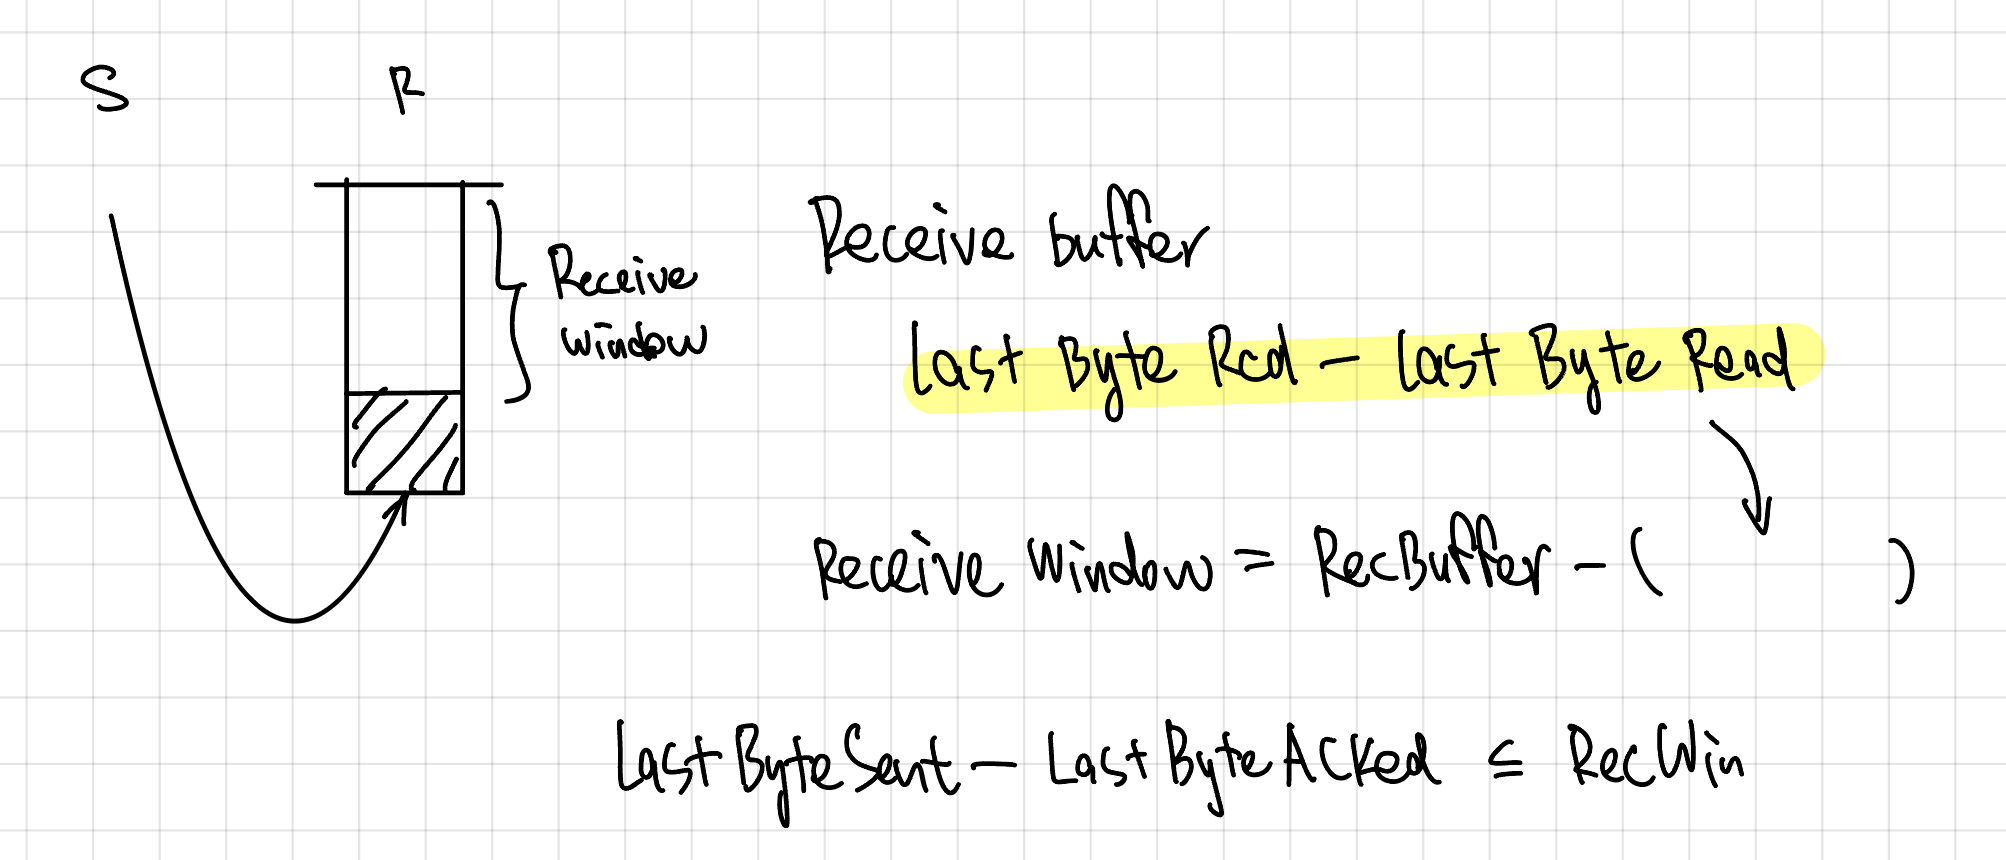 S R
Receive
window
Receive buffer
Last Byte Rcd - Last Byte Read
Receive Window = RecBuffer - ( )
LastByteSent - LastByteACKed ≤ RecWin